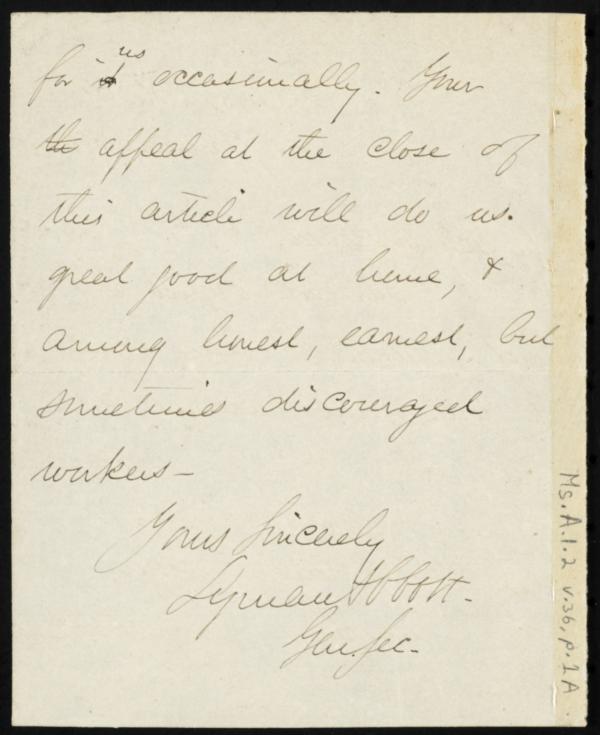 for us occasionally. Your
the appeal at the close of
this article will do us.
great good at home, &
among honest, earnest, but
sometimes discouraged
workers—
Yours Sincerely
Lyman Abbott.
Gen. Sec.
Ms. A. 1. 2 v. 36, p. 1A